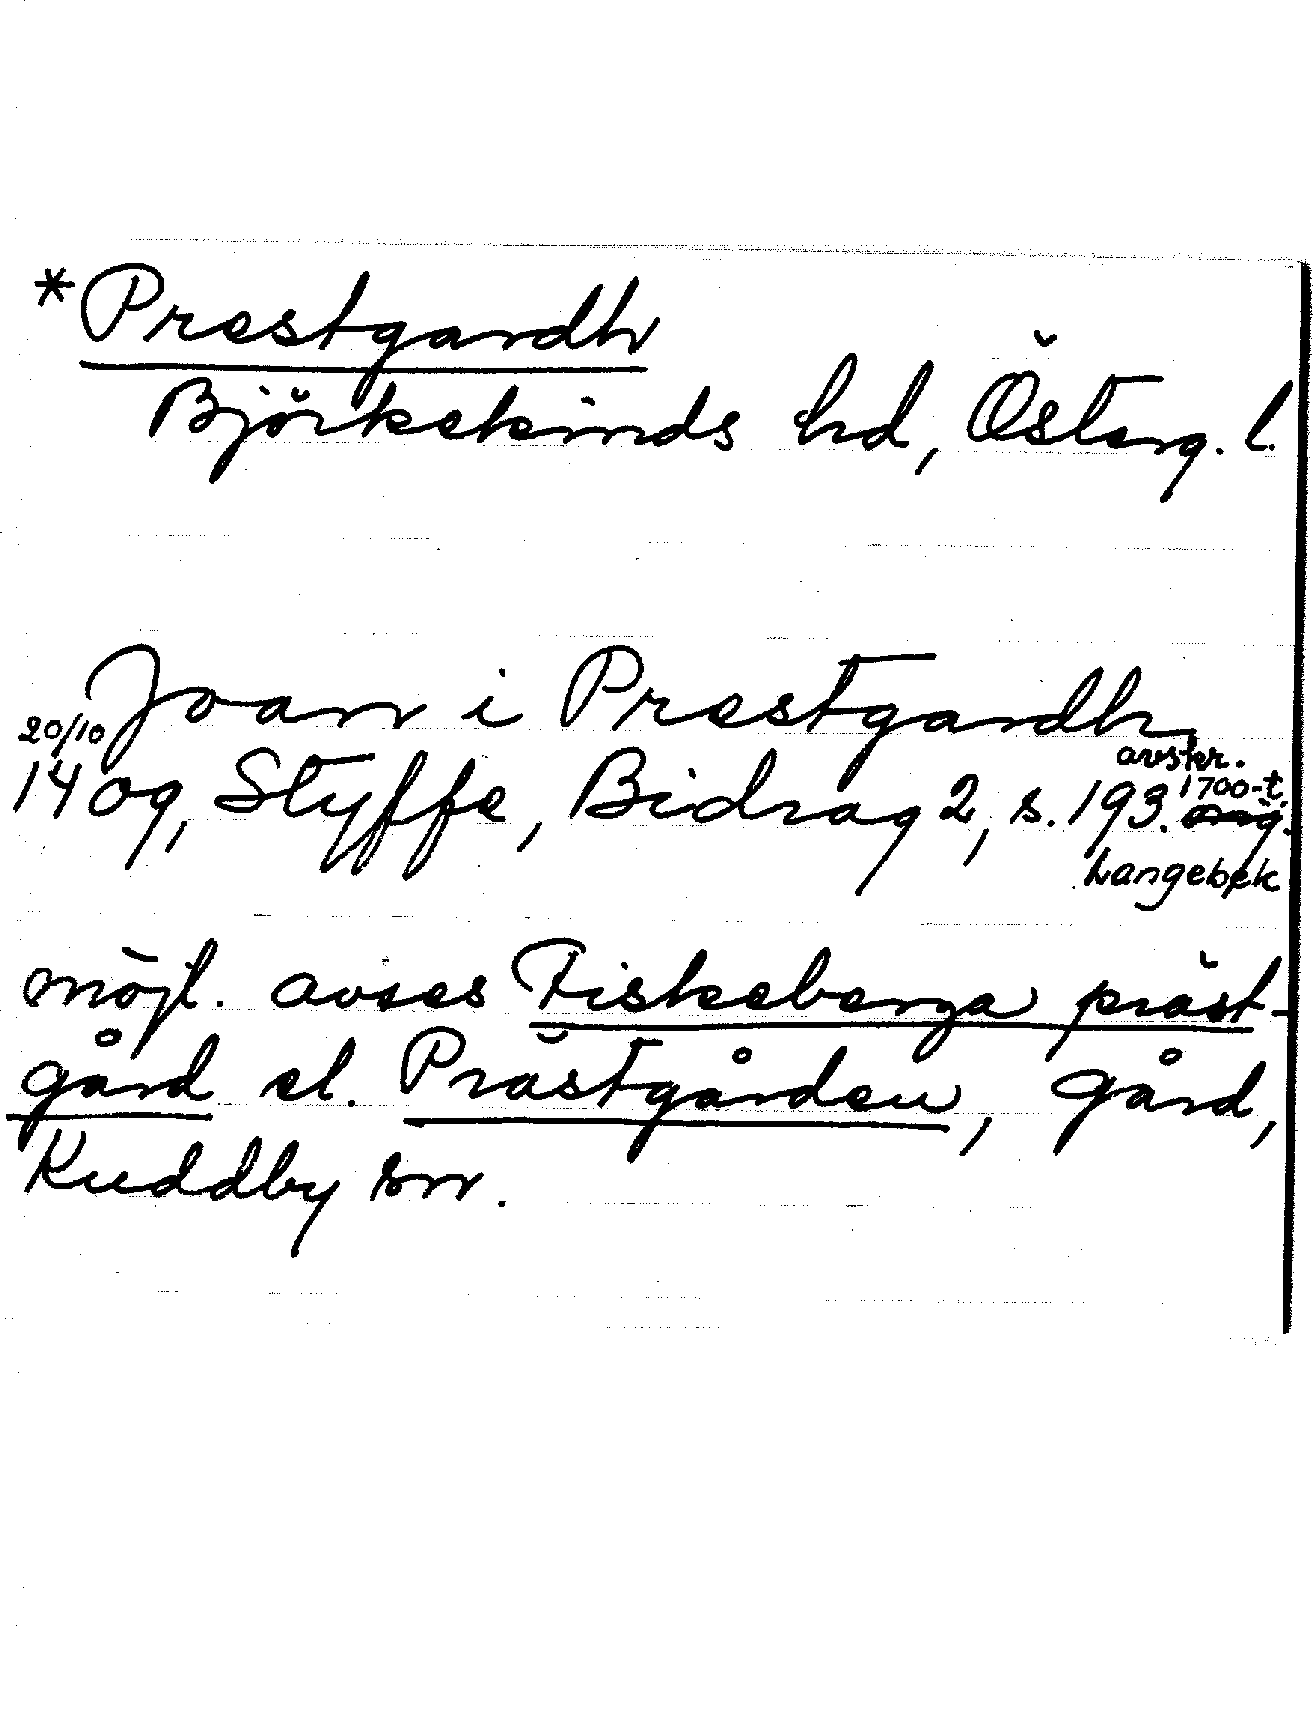 *Prestgardh
Björkekinds hd, Österg. l.
Joan i Prestgardh,
20/10
1409, Styffe, Bidrag 2, s. 193. avskr. 1700-t.
Langebek
möjl. avses Fiskeberga präst-
gård el. Prästgården, gård,
Kuddby sn.